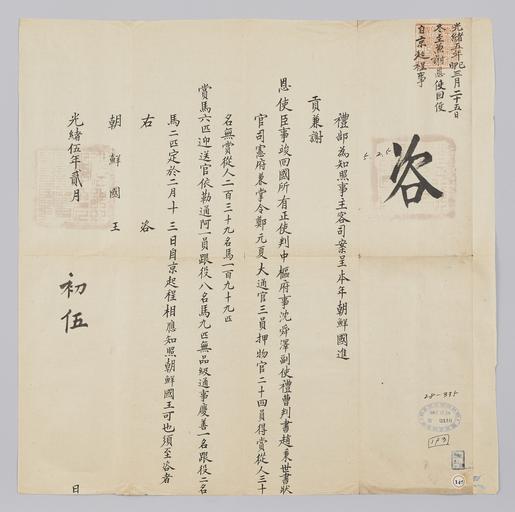 光緒五年己卯三月二十五日
冬至兼謝恩使回便
自京起程事
咨
禮部為知照事主客司案呈本年朝鮮國進
貢兼謝
恩使臣事竣回國所有正使判中樞府事沈舜澤副使禮曹判書趙秉世書狀
官司憲府兼掌令鄭元夏大通官三員押物官二十四員得賞從人三十
名無賞從人二百三十九名馬一百九十九匹
賞馬六匹迎送官依勒通阿一員跟役八名馬九匹無品級通事慶善一名跟役二名
馬二匹定於二月十三日自京起程相應知照朝鮮國王可也須至咨者
右咨
朝鮮國王
光緒伍年貳月
初伍
日
5.2.5
28-335
193
149